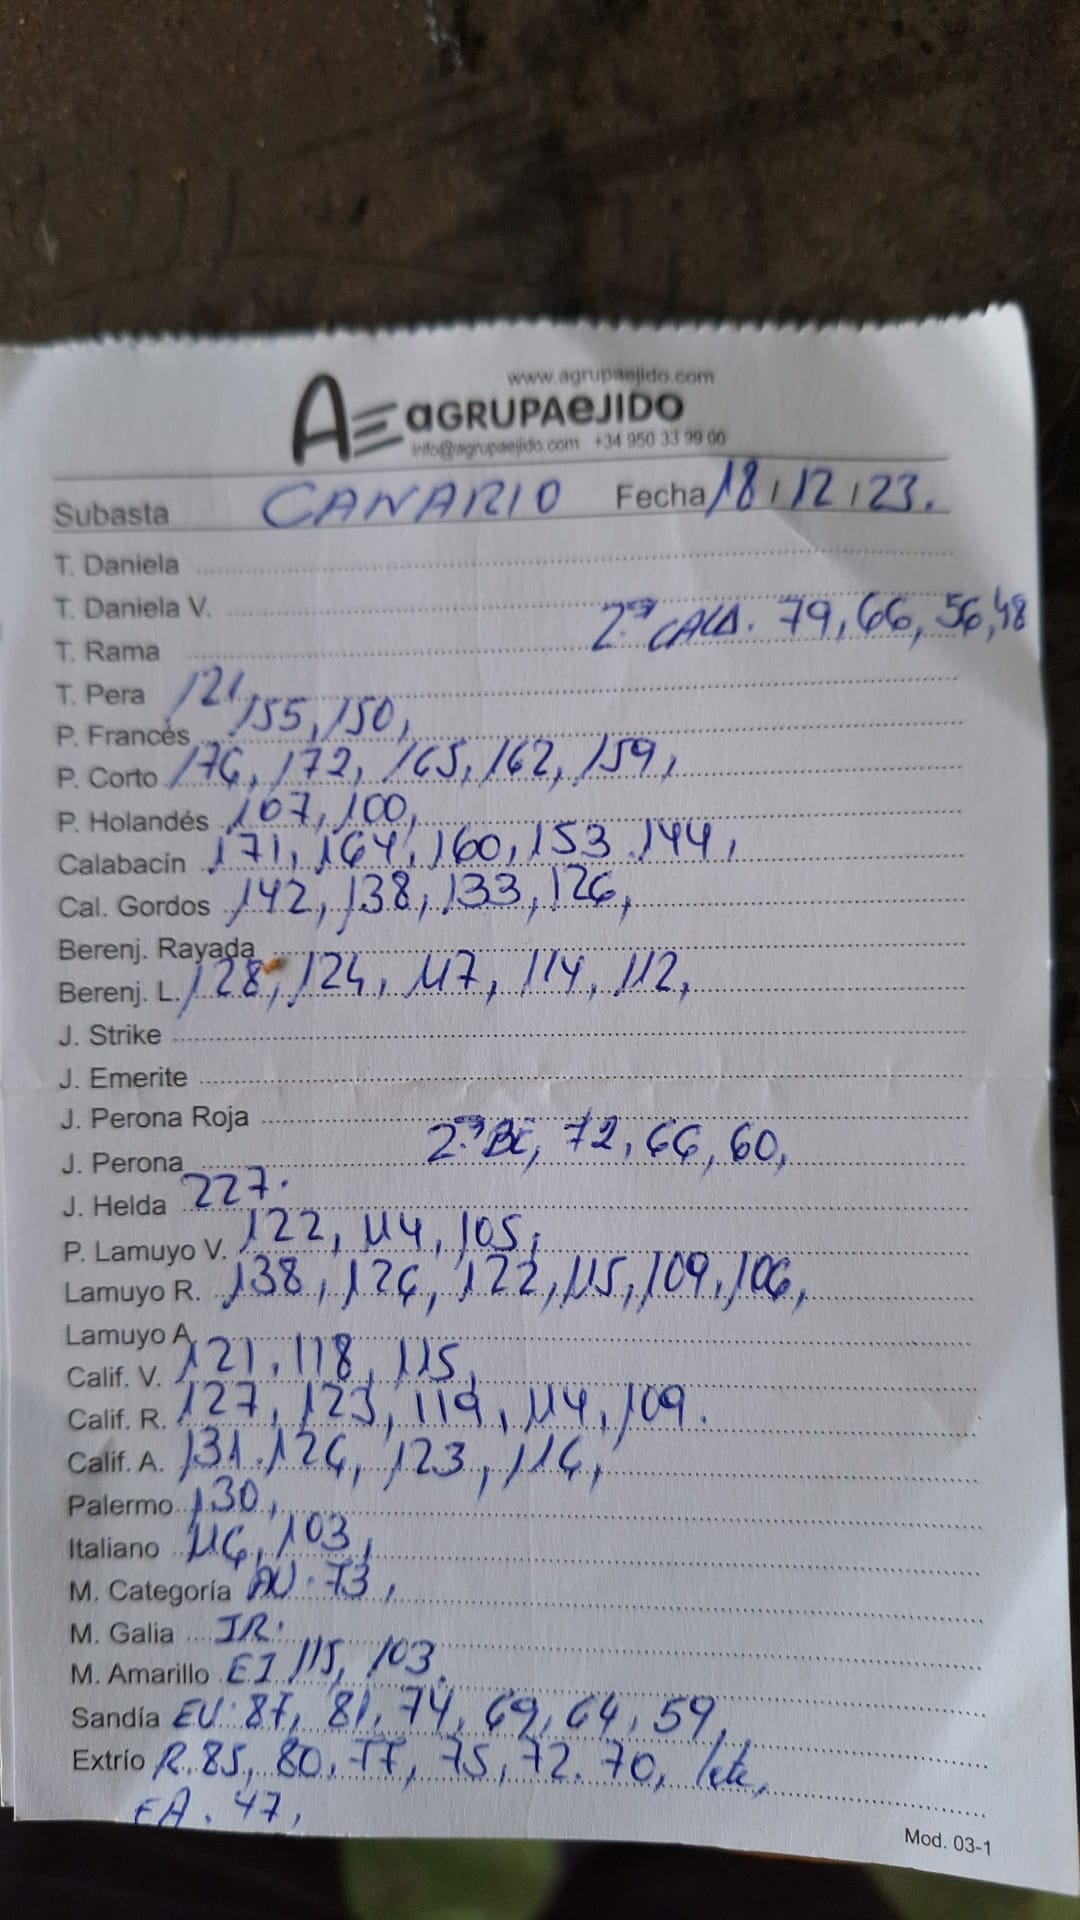 www.agrupaejido.com
AE aGRUPAeJIDO
info@agrupaejido.com +34 950 33 99 00
Subasta CANARIO Fecha 18/12/23.
T. Daniela
T. Daniela V.
2.ª CALA. 79, 66, 56, 48
T. Rama
T. Pera 121
P. Francés 155, 150,
P. Corto 176, 172, 165, 162, 159,
P. Holandés 107, 100,
Calabacín 171, 164, 160, 153. 144,
Cal. Gordos 142, 138, 133, 126,
Berenj. Rayada
Berenj. L. 128, 124, 117, 114, 112,
J. Strike
J. Emerite
J. Perona Roja
J. Perona 2.ª BE, 72, 66, 60,
J. Helda 227.
P. Lamuyo V. 122, 114, 105,
Lamuyo R. 138, 126, 122, 115, 109, 106,
Lamuyo A.
Calif. V. 121, 118, 115,
Calif. R. 127, 123, 119, 114, 109.
Calif. A. 131. 126, 123, 116,
Palermo 130,
Italiano 116, 103,
M. Categoría AV. 73,
M. Galia IR.
M. Amarillo EI 115, 103.
Sandía EV. 87, 81, 74, 69, 64, 59,
Extrío R. 85, 80, 77, 75, 72. 70,
EA. 47,
Mod. 03-1